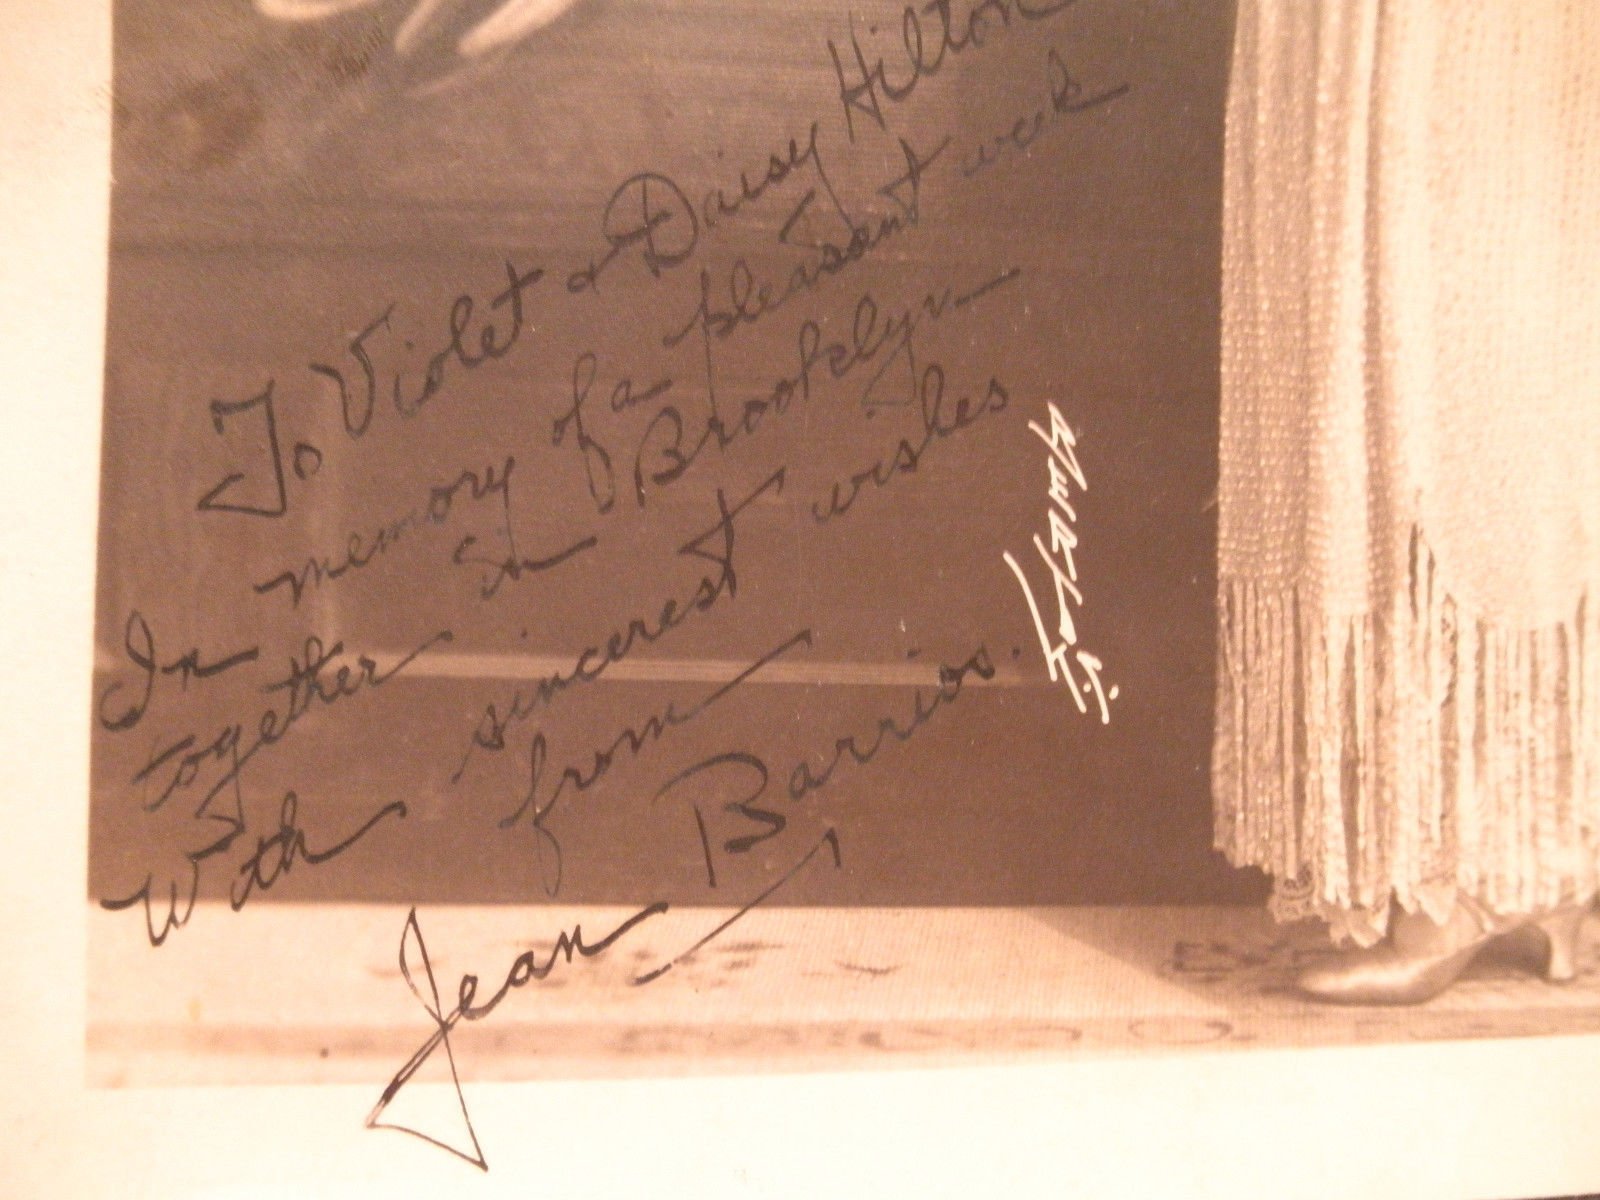 To Violet & Daisy Hilton
In memory of a pleasant week
together in Brooklyn
With sincerest wishes
from
Jean Barrios.